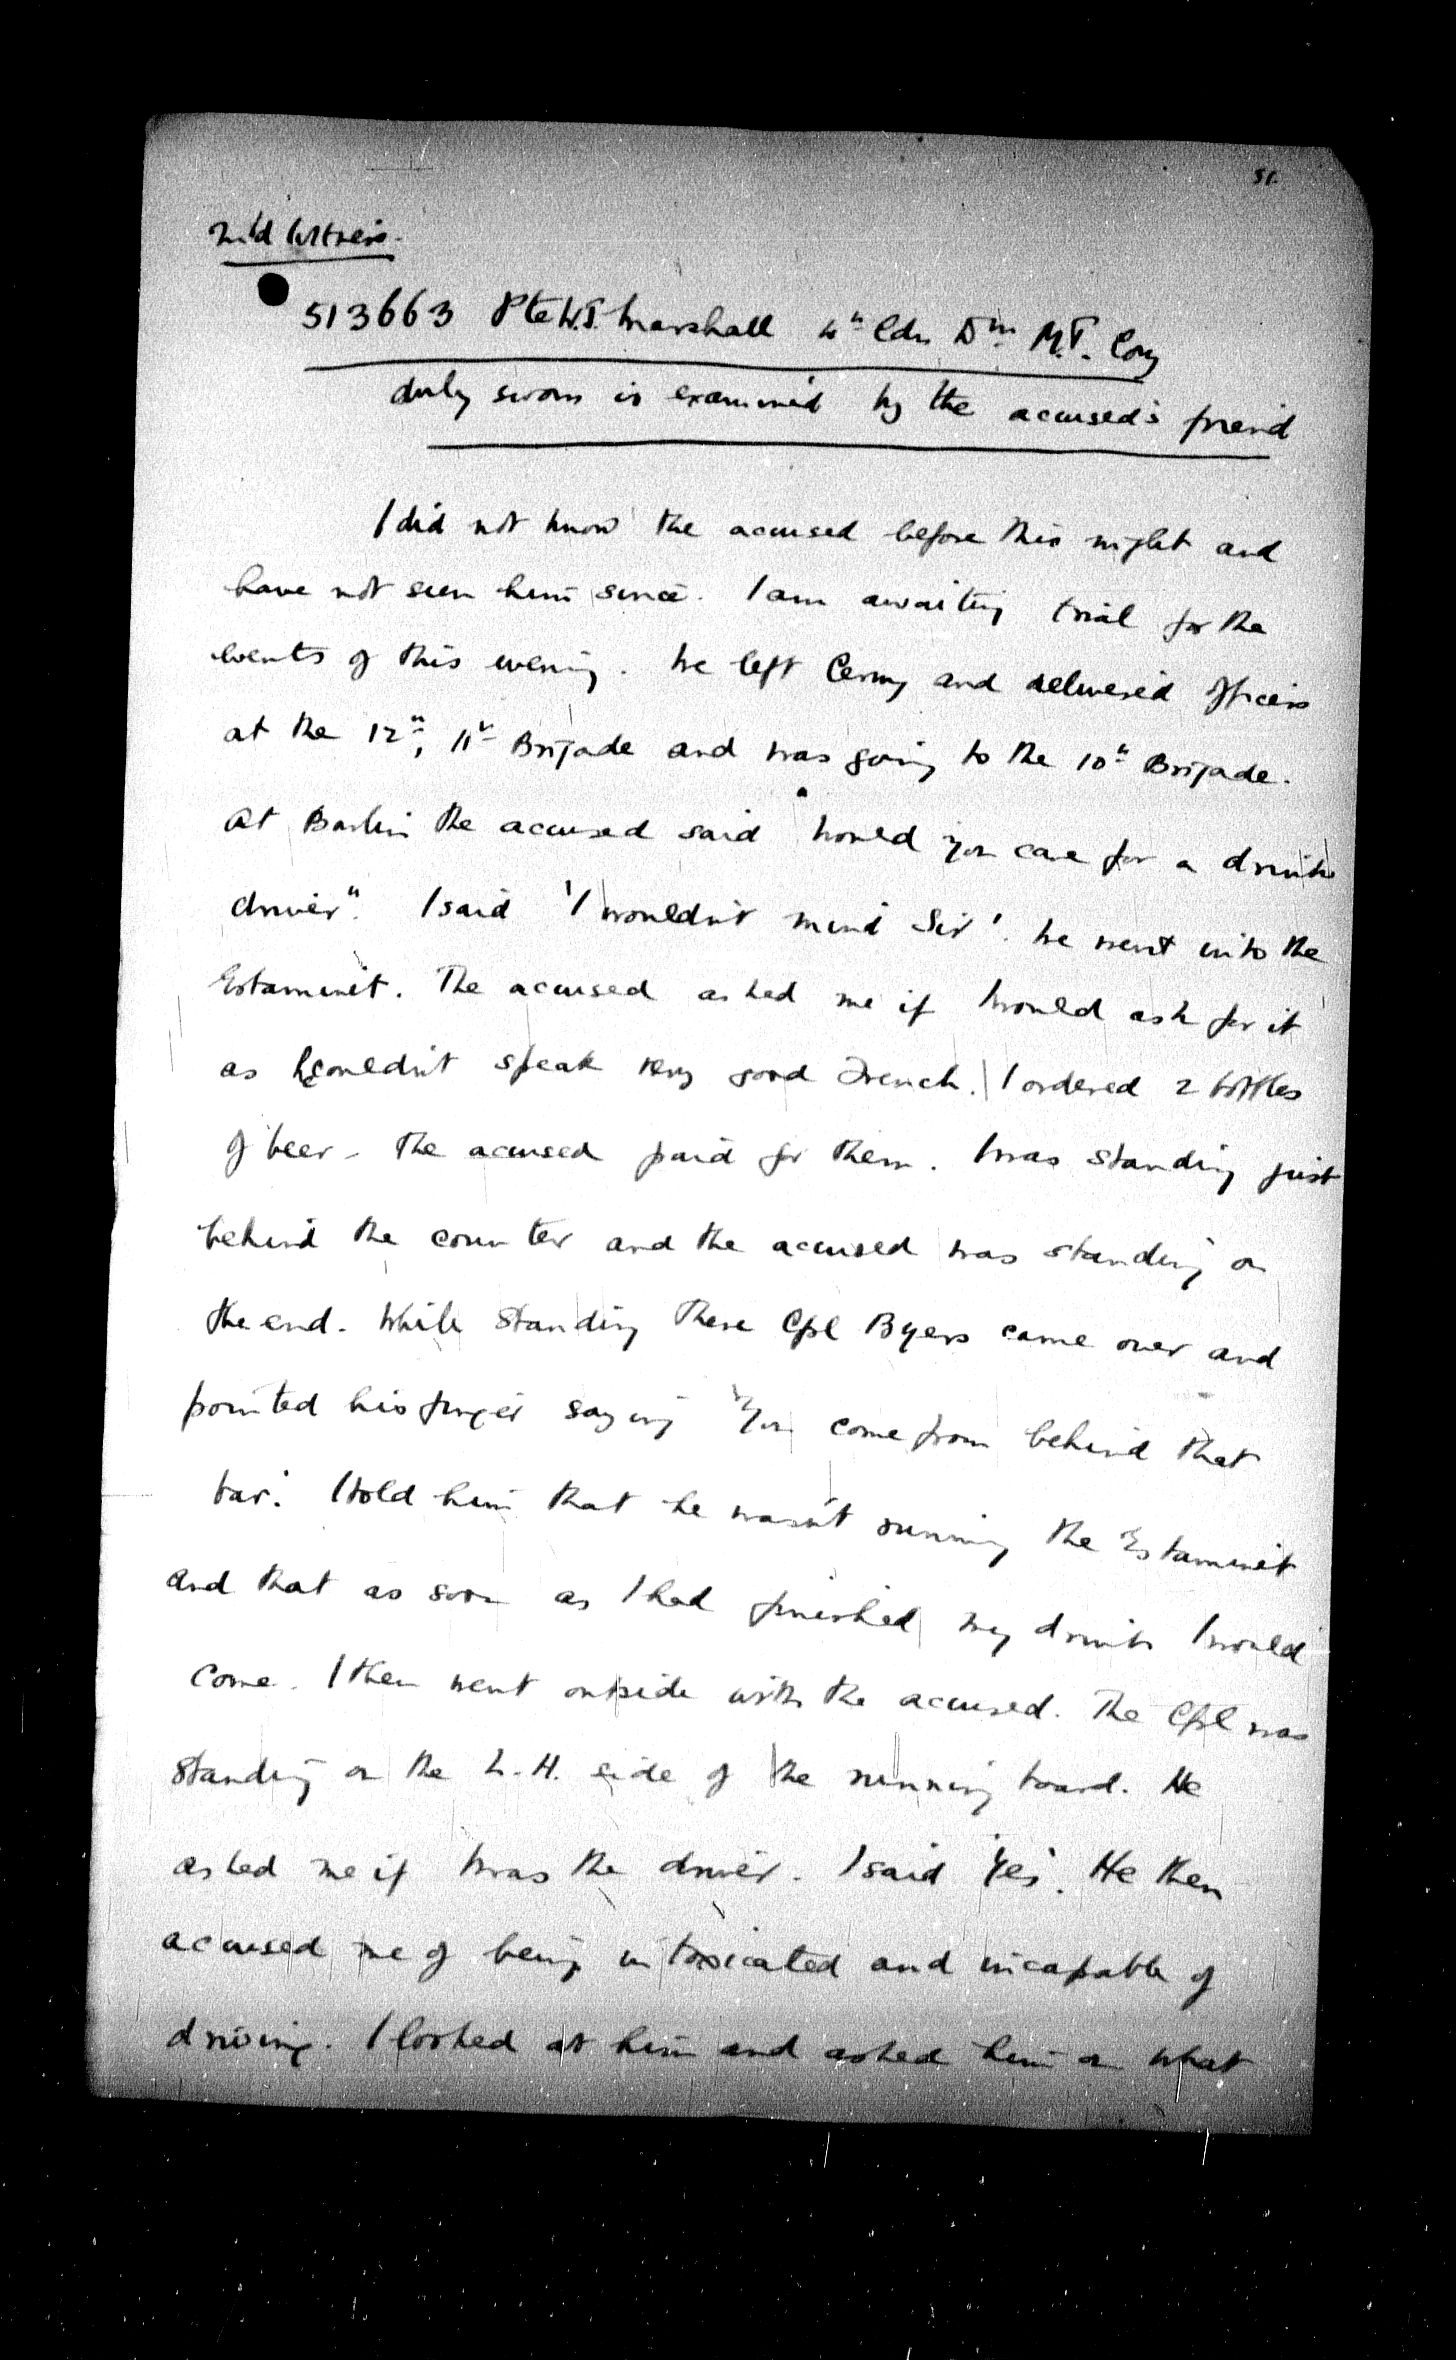 51.
2nd Witness.
513663 Pte W.J. Marshall 4th Cdn Dn. M.T. Coy
duly sworn is examined by the accused's friend
I did not know the accused before this night and
have not seen him since. I am awaiting trial for the
events of this evening. We left and delivered officers
at the 12th, 11th Brigade and was going to the 10th Brigade.
At Barlin the accused said "Would you care for a drink
driver". I said 'I wouldn't mind Sir'. We went into the
Estaminet. The accused asked me if I would ask for it
as he couldn't speak very good French. I ordered 2 bottles
of beer - the accused paid for them. I was standing just
behind the counter and the accused was standing on
the end. While standing there Cpl Byers came over and
pointed his finger saying "You come from behind that
bar." I told him that he wasn't running the Estaminet
and that as soon as I had finished my drink I would
come. I then went outside with the accused. The Cpl was
standing on the L.H. side of the running board. He
asked me if I was the driver. I said 'Yes'. He then
accused me of being intoxicated and incapable of
driving. I looked at him and asked him on what